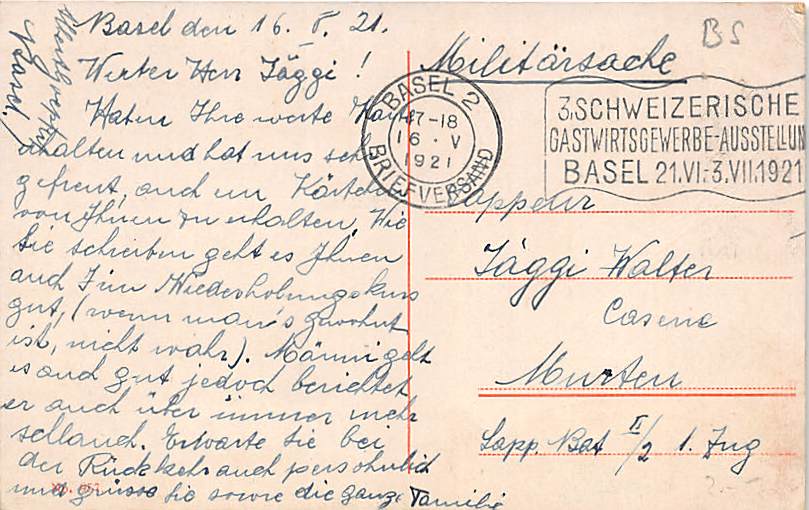 Basel den 16. V. 21.
Werter Herr Jäggi !
Haben Ihre werte Karte
erhalten und hat uns sehr
gefreut, auch ein Kärtchen
von Ihnen zu erhalten. Wie
Sie schreiben geht es Ihnen
auch Im Wiederholungskurs
gut, (wenn man's gewohnt
ist, nicht wahr). Männi geht
es auch gut jedoch berichtet
er auch über immer mehr
Erwarte Sie bei
der Rückkehr auch persöhnlich
und grüsse Sie sowie die ganze Familie
Basel.
Militärsache
BS
BASEL 2
17-18
16. V
1921
BRIEFVERSAND
3. SCHWEIZERISCHE
GASTWIRTSGEWERBE-AUSSTELLUN
BASEL 21.VI.-3.VII.1921
Sappeur
Jäggi Walter
Caserne
Murten
Sapp. Bat II/2 1. Zug